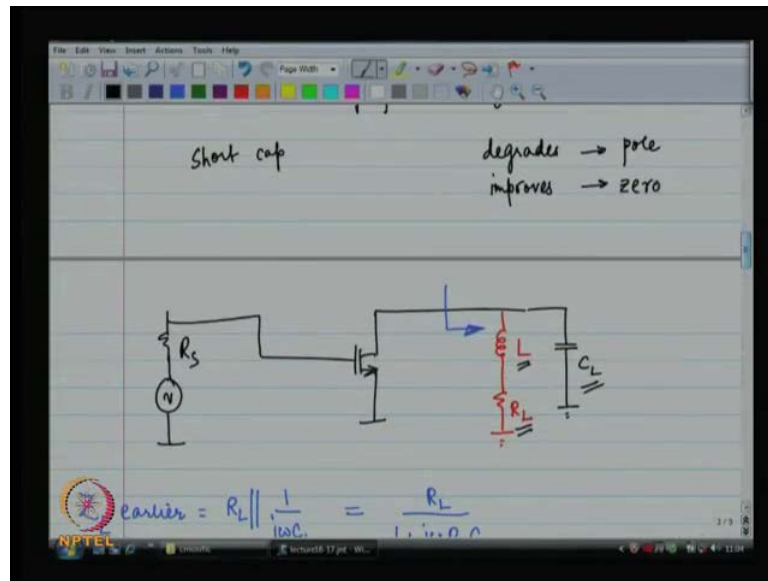 File Edit View Insert Actions Tools Help
Page Width
B I
short cap
degrades → pole
improves → zero
R_S
L
R_L
C_L
earlier = R_L || 1 / jωC = R_L
NPTEL
lecture16-17.jnt - Wi...
2/3
11:04